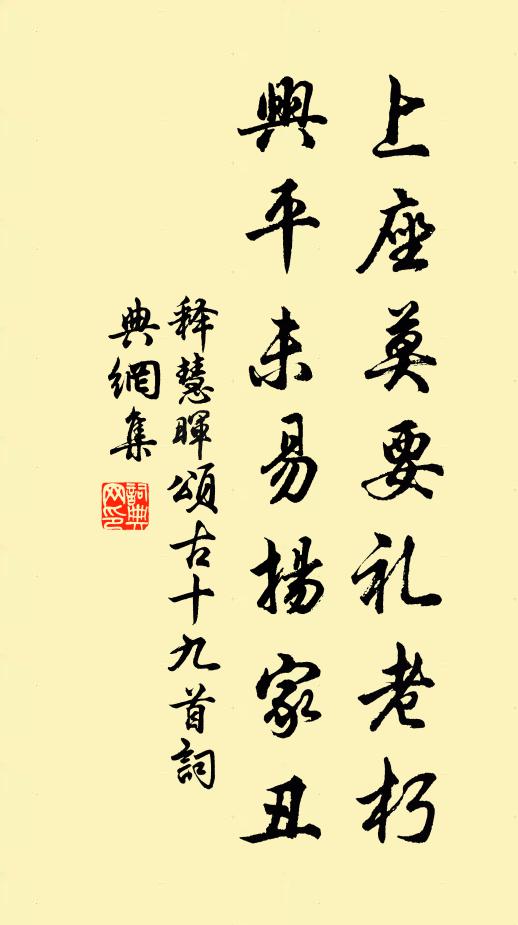 上座莫要礼老朽
興平未易揚家丑
释慧暉頌古十九首詞
典網集
詞典
网印